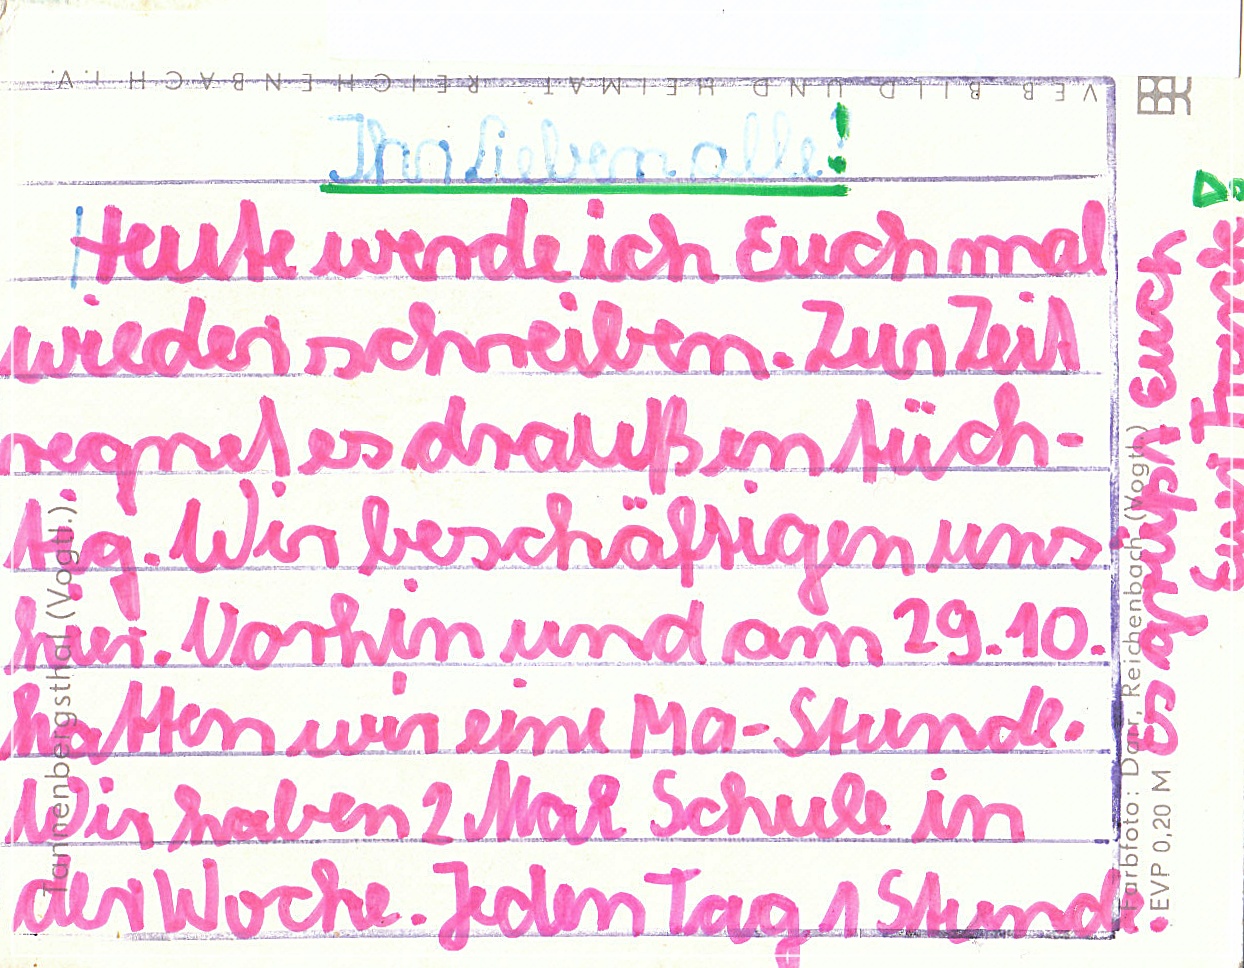 VEB BILD UND HEIMAT REICHENBACH I.V.
Ihr lieben alle!
Heute werde ich Euch mal
wieder schreiben. Zur Zeit
regnet es draußen tüch-
tig. Wir beschäftigen uns
hier. Vorhin und am 29.10.
hatten wir eine Ma-Stunde.
Wir haben 2 Mal Schule in
der Woche. Jeden Tag 1 Stunde.
Es grüßt Euch
Eure
Tannenbergsthal (Vogtl.)
Farbfoto: Darr, Reichenbach (Vogtl)
EVP 0,20 M